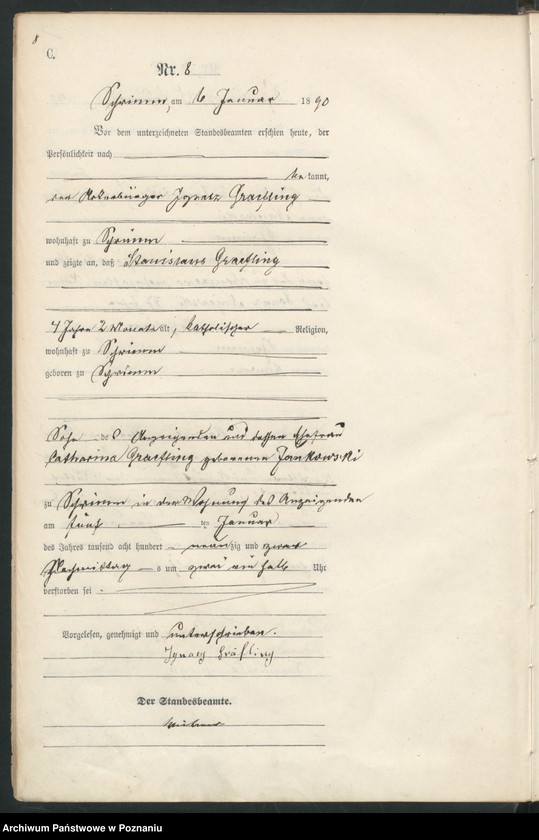 8
C.
Nr. 8
Schrimm, am 6 Januar 1890
Vor dem unterzeichneten Standesbeamten erschien heute, der
Persönlichkeit nach
bekannt,
der Ackerbürger Ignatz Graefling
wohnhaft zu Schrimm
und zeigte an, daß Stanislaus Graefling
4 Jahre 2 Monate alt, katholischer Religion,
wohnhaft zu Schrimm
geboren zu Schrimm
Sohn des Anzeigenden und dessen Ehefrau
Catharina Graefling geborenen Jankowski
zu Schrimm in der Wohnung des Anzeigenden
am fünf ten Januar
des Jahres tausend acht hundert neunzig und zwar
Nachmittag s um zwei ein halb Uhr
verstorben sei
Vorgelesen, genehmigt und unterschrieben.
Ignacy Gräfling
Der Standesbeamte.
Archiwum Państwowe w Poznaniu